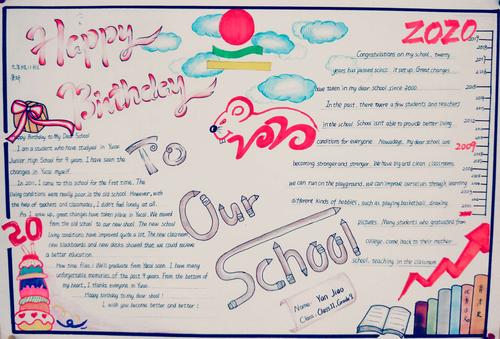 Happy
Birthday
To
Our
School
2020
2009
20
Happy Birthday to My Dear School
I am a student who have studied in Yaoxi
Junior High School for 9 years. I have seen the
changes in Yaoxi myself.
In 2011, I came to this school for the first time. The
living conditions were really poor in the old school. However, with
the help of teachers and classmates, I didn't feel lonely at all.
As I grew up, great changes have taken place in Yaoxi. We moved
from the old school to our new school. The new school
living conditions have improved quite a lot. The new classroom
new blackboards and new desks showed that we could receive
a better education.
How time flies! We'll graduate from Yaoxi soon. I have many
unforgettable memories of the past 9 years. From the bottom of
my heart, I thanks everyone in Yaoxi.
Happy birthday to my dear shool!
I wish you become better and better!
Congratulations on my school, twenty
years has passed since it set up. Great changes
have taken in my dear school since 2000.
In the past, there were a few students and teachers
in the school. School isn't able to provide better living
conditions for everyone. Nowadays, my dear school are
becoming stronger and stronger. We have big and clean classrooms.
we can run on the playground, we can improve ourselves through learning
different kinds of hobbies, such as, playing basketball, drawing
pictures. Many students who graduated from
college, come back to their mother
school, teaching in the classroom.
Name: Yan Jiao
Class: Class 11, Grade 9